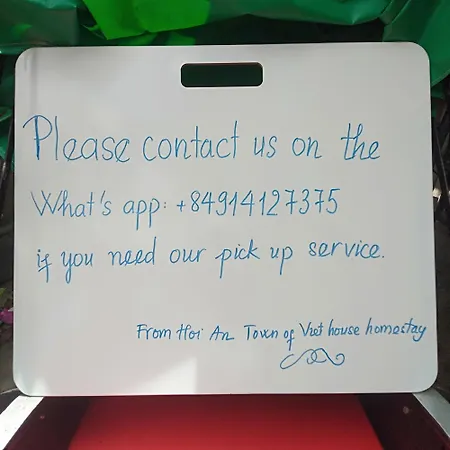 Please contact us on the
What's app: +84914127375
if you need our pick up service.
From Hoi An Town of Viet house homestay